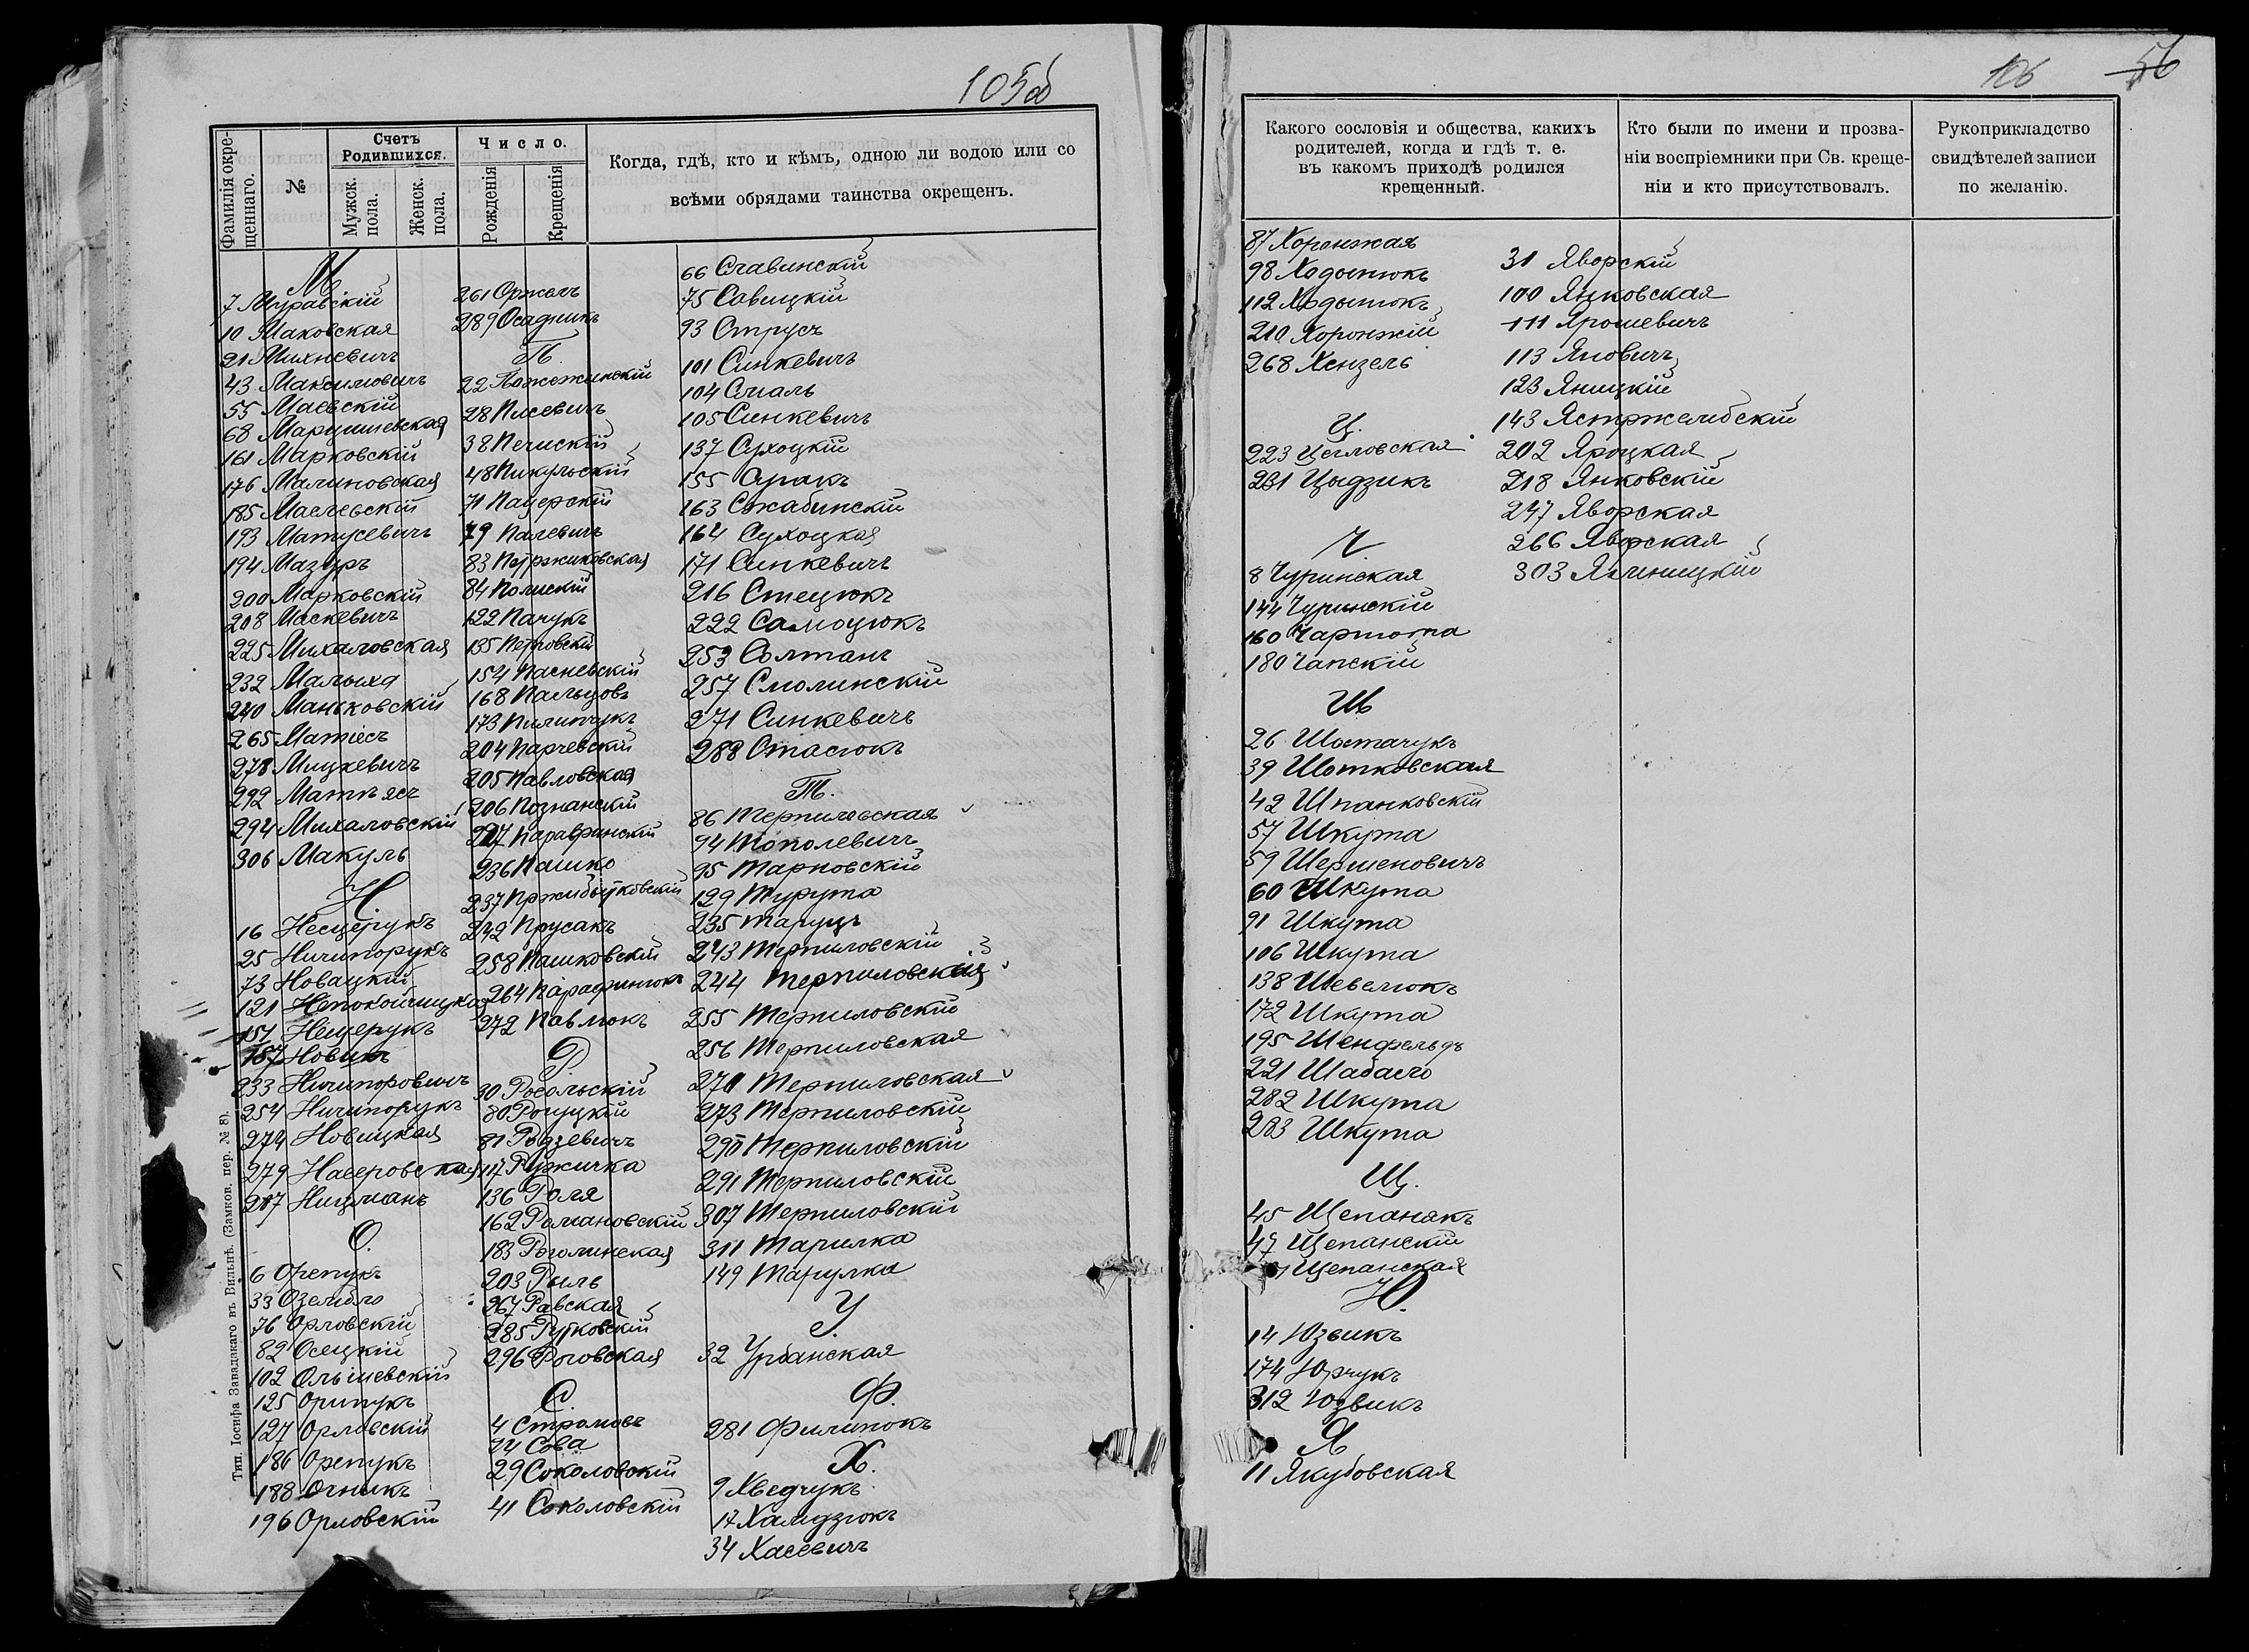 105об
Фамилія окрещеннаго.
№
Счетъ Родившихся.
Мужск. пола.
Женск. пола.
Число.
Рожденія
Крещенія
Когда, гдѣ, кто и кѣмъ, одною ли водою или со
всѣми обрядами таинства окрещенъ.
М.
7 Муравскій
10 Маковская
21 Михневичъ
43 Максимовичъ
55 Маевскій
68 Марцишевская
161 Марковскій
176 Малиновская
185 Маслевскій
193 Матусевичъ
194 Мазуръ
200 Марковскій
208 Маскевичъ
225 Михаловская
232 Малыха
240 Маньковскій
265 Матіесъ
278 Мицкевичъ
292 Матѣясъ
294 Михаловскій
306 Макуль
Н.
16 Несцерукъ
25 Ничипорукъ
73 Новацкій
121 Непокойчицкая
151 Нещерукъ
157 Новикъ
233 Ничипоровичъ
254 Ничипорукъ
274 Новицкая
279 Насеровская
287 Ницманъ
О.
6 Орепукъ
33 Озембло
76 Орловскій
82 Осецкій
102 Ольшевскій
125 Орипукъ
127 Орловскій
186 Орепукъ
188 Огникъ
196 Орловскій
261 Оржехъ
289 Осадникъ
П.
22 Пожежинскій
28 Писевичъ
38 Печискій
48 Пикульскій
71 Пацерскій
79 Палевичъ
83 Петржиковская
84 Полискій
122 Пачукъ
135 Петровскій
154 Пасневскій
168 Пальцовъ
173 Пилипчукъ
204 Парчевскій
205 Павловская
206 Познанскій
227 Паравринскій
236 Пашко
237 Пржибытковскій
242 Прусакъ
258 Пашковскій
264 Парафинюкъ
272 Павлюкъ
Р.
30 Росольскій
80 Рогуцкій
81 Родзевичъ
117 Ружичка
136 Роля
162 Романовскій
183 Роголинская
203 Рыль
267 Равская
285 Рутковскій
296 Роговская
С.
4 Стромовъ
24 Сова
29 Соколовскій
41 Соколовскій
66 Славинскій
75 Савицкій
93 Струсъ
101 Синкевичъ
104 Сталь
105 Синкевичъ
137 Сухоцкій
155 Суракъ
163 Сжабинскій
164 Сухоцкая
171 Синкевичъ
216 Стецюкъ
222 Самоцюкъ
253 Солтанъ
257 Смолинскій
271 Синкевичъ
288 Стасюкъ
Т.
86 Терпиловская
94 Тополевичъ
95 Тарновскій
129 Турута
235 Таруцъ
243 Терпиловскій
244 Терпиловскій
255 Терпиловскій
256 Терпиловская
270 Терпиловская
273 Терпиловскій
290 Терпиловскій
291 Терпиловскій
307 Терпиловскій
311 Тарилка
149 Тарулка
У.
32 Урбанская
Ф.
281 Филипокъ
Х.
9 Хведчукъ
17 Хамдзюкъ
34 Хасевичъ
Тип. Іосифа Завадзкаго въ Вильнѣ. (Замков. пер. № 8).
106
56
Какого сословія и общества, какихъ
родителей, когда и гдѣ т. е.
въ какомъ приходѣ родился
крещенный.
Кто были по имени и прозва-
ніи воспріемники при Св. креще-
ніи и кто присутствовалъ.
Рукоприкладство
свидѣтелей записи
по желанію.
87 Хоренжая
98 Ходынюкъ
112 Ходынюкъ
210 Хоронжій
268 Хензель
Ц.
223 Цегловская
231 Цыдзикъ
Ч.
8 Чуринская
144 Чуринскій
160 Чартота
180 Чапскій
Ш
26 Шостачукъ
39 Шотковская
42 Шпанковскій
57 Шкута
59 Шершеновичъ
60 Шкута
91 Шкута
106 Шкута
138 Шевелюкъ
172 Шкута
195 Шенфельдъ
221 Шабасго
282 Шкута
283 Шкута
Щ.
45 Щепанякъ
47 Щепанскій
Щепанская
Ю.
14 Юзвикъ
174 Юрчукъ
312 Юзвикъ
Я
11 Якубовская
31 Яворскій
100 Янковская
111 Ярошевичъ
113 Яновичъ
123 Яницкій
143 Ястржембскій
202 Яроцкая
218 Янковскій
247 Яворская
266 Яворская
303 Ялиницкій